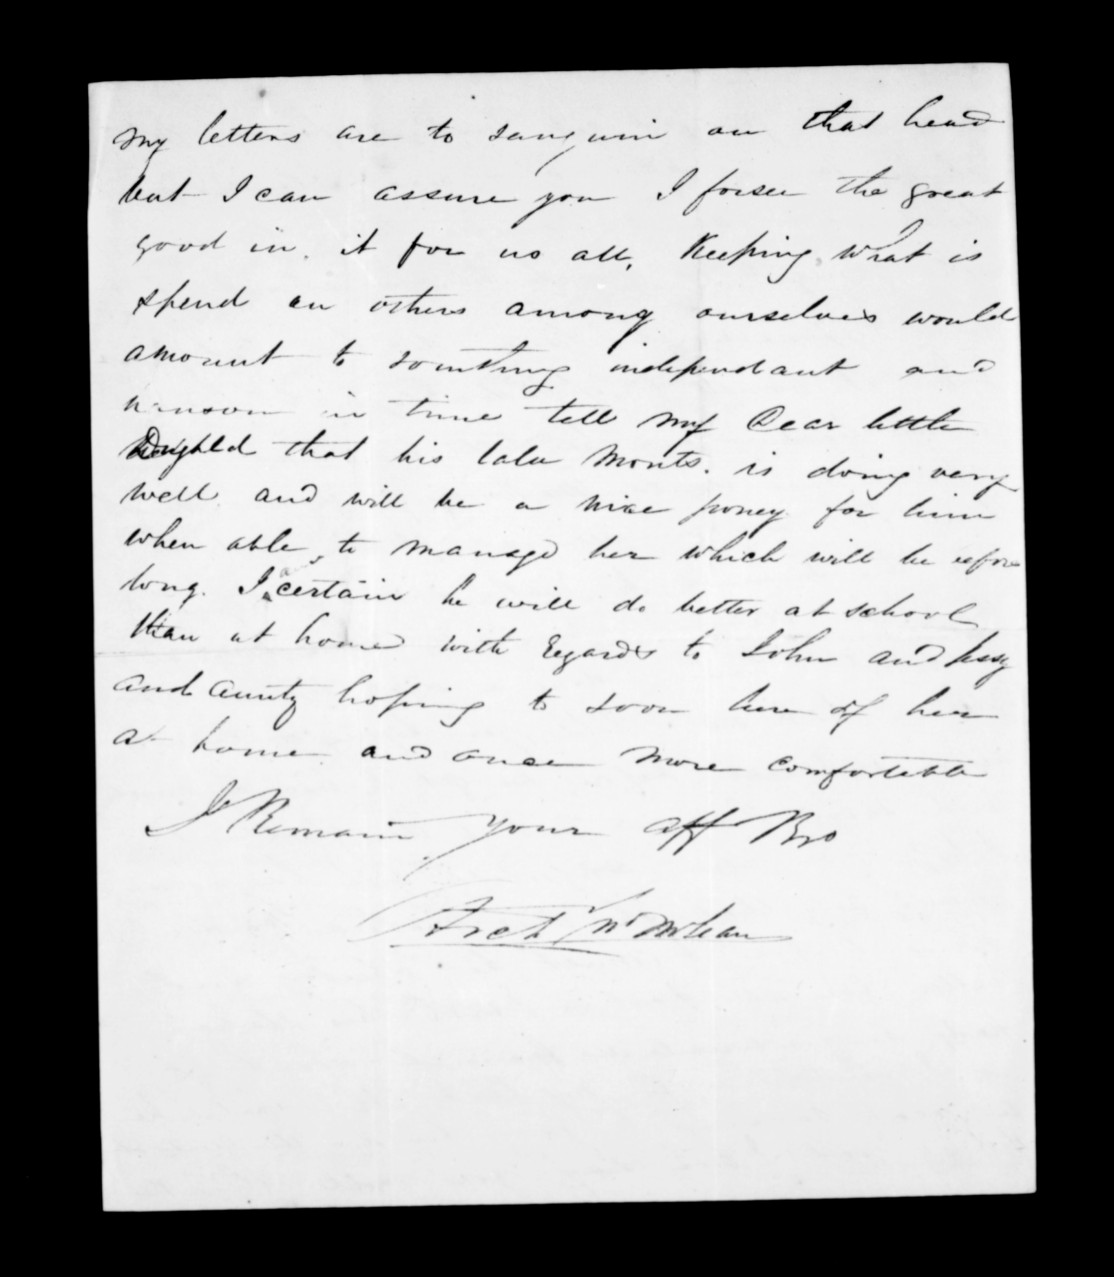 my letters are to sanguin on that head
but I can assure you I forsee the great
good in it for us all, Keeping what is
spend on others among ourselves would
amount to somthing independant and
in time tell my Dear little
that his is doing very
well and will be a nice poney for him
when able to manage her which will be before
long. I am certain he will do better at school
than at home with Regards to John and
and aunty hoping to soon here of her
at home and once more comfortable
I Remain your aff Bro
Archd McLean